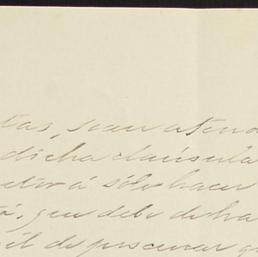 tas, sean atend
dicha cláusula
á sólo hacer
que debe dicha
él de procurar q